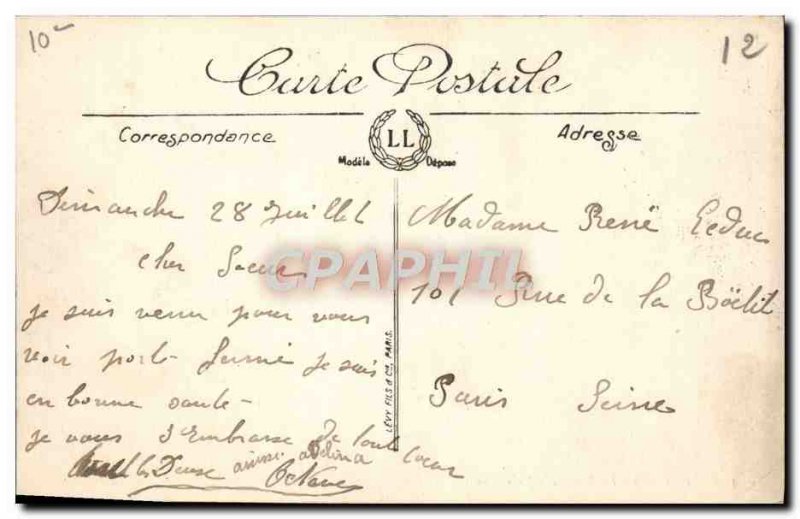 10
12
Carte Postale
Correspondance
LL
Adresse
Modèle Déposé
Dimanche 28 Juillet
cher Soeur
je suis venu pour vous
voir porte fermé je suis
en bonne sante
je vous Embrasse de tout coeur
ainsi
Octave
Madame René Leduc
101 Rue de la Böétit
Paris Seine
LÉVY FILS & Cie, PARIS.
CPAPHIL